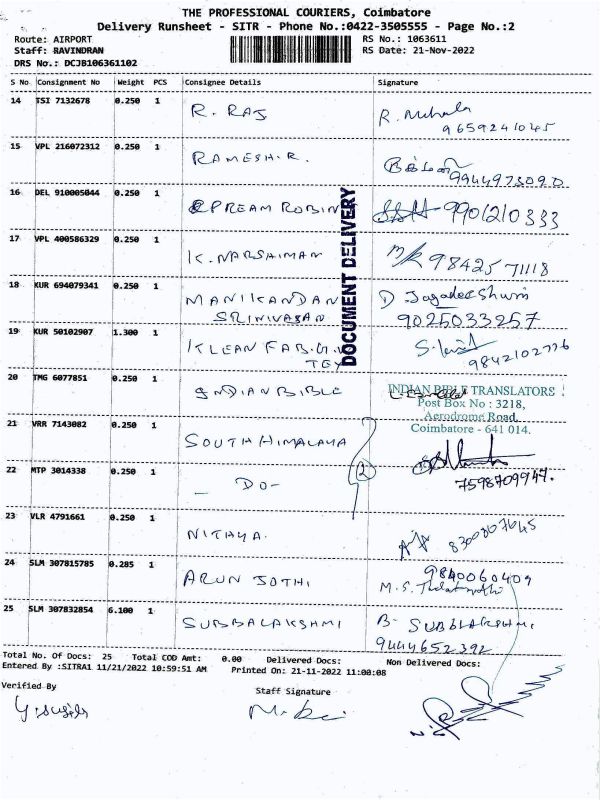 THE PROFESSIONAL COURIERS, Coimbatore
Delivery Runsheet - SITR - Phone No.:0422-3505555 - Page No.:2
Route: AIRPORT RS No.: 1063611
Staff: RAVINDRAN RS Date: 21-Nov-2022
DRS No.: DCJB106361102
S No Consignment No Weight PCS Consignee Details Signature
14 TSI 7132678 0.250 1 R. RAJ
9659241045
15 VPL 216072312 0.250 1 RAMESH.R.
9944973090
16 DEL 910005044 0.250 1 PREAM ROBIN 9901210333
DOCUMENT DELIVERY
17 VPL 400586329 0.250 1 K. NARSHIMAN 9842571118
18 KUR 694079341 0.250 1 MANIKANDAN D Jagadeeshwn
SRINIVASAN 9025033257
19 KUR 50102907 1.300 1 KLEAN FAB.
TEX 9842102776
20 TMG 6077851 0.250 1 INDIAN BIBLE INDIAN BIBLE TRANSLATORS
Post Box No : 3218,
Aerodrome Road,
Coimbatore - 641 014.
21 VRR 7143082 0.250 1 SOUTH HIMALAYA
22 MTP 3014338 0.250 1 - DO - 2 7598709947.
23 VLR 4791661 0.250 1 NITHYA. 8300307645
24 SLM 307815785 0.285 1 ARUN JOTHI 9840060409
M.S.
25 SLM 307832854 6.100 1 SUBBALAKSHMI B. SUBBLAKSHMI
9444652392
Total No. Of Docs: 25 Total COD Amt: 0.00 Delivered Docs: Non Delivered Docs:
Entered By :SITRA1 11/21/2022 10:59:51 AM Printed On: 21-11-2022 11:00:08
Verified By Staff Signature